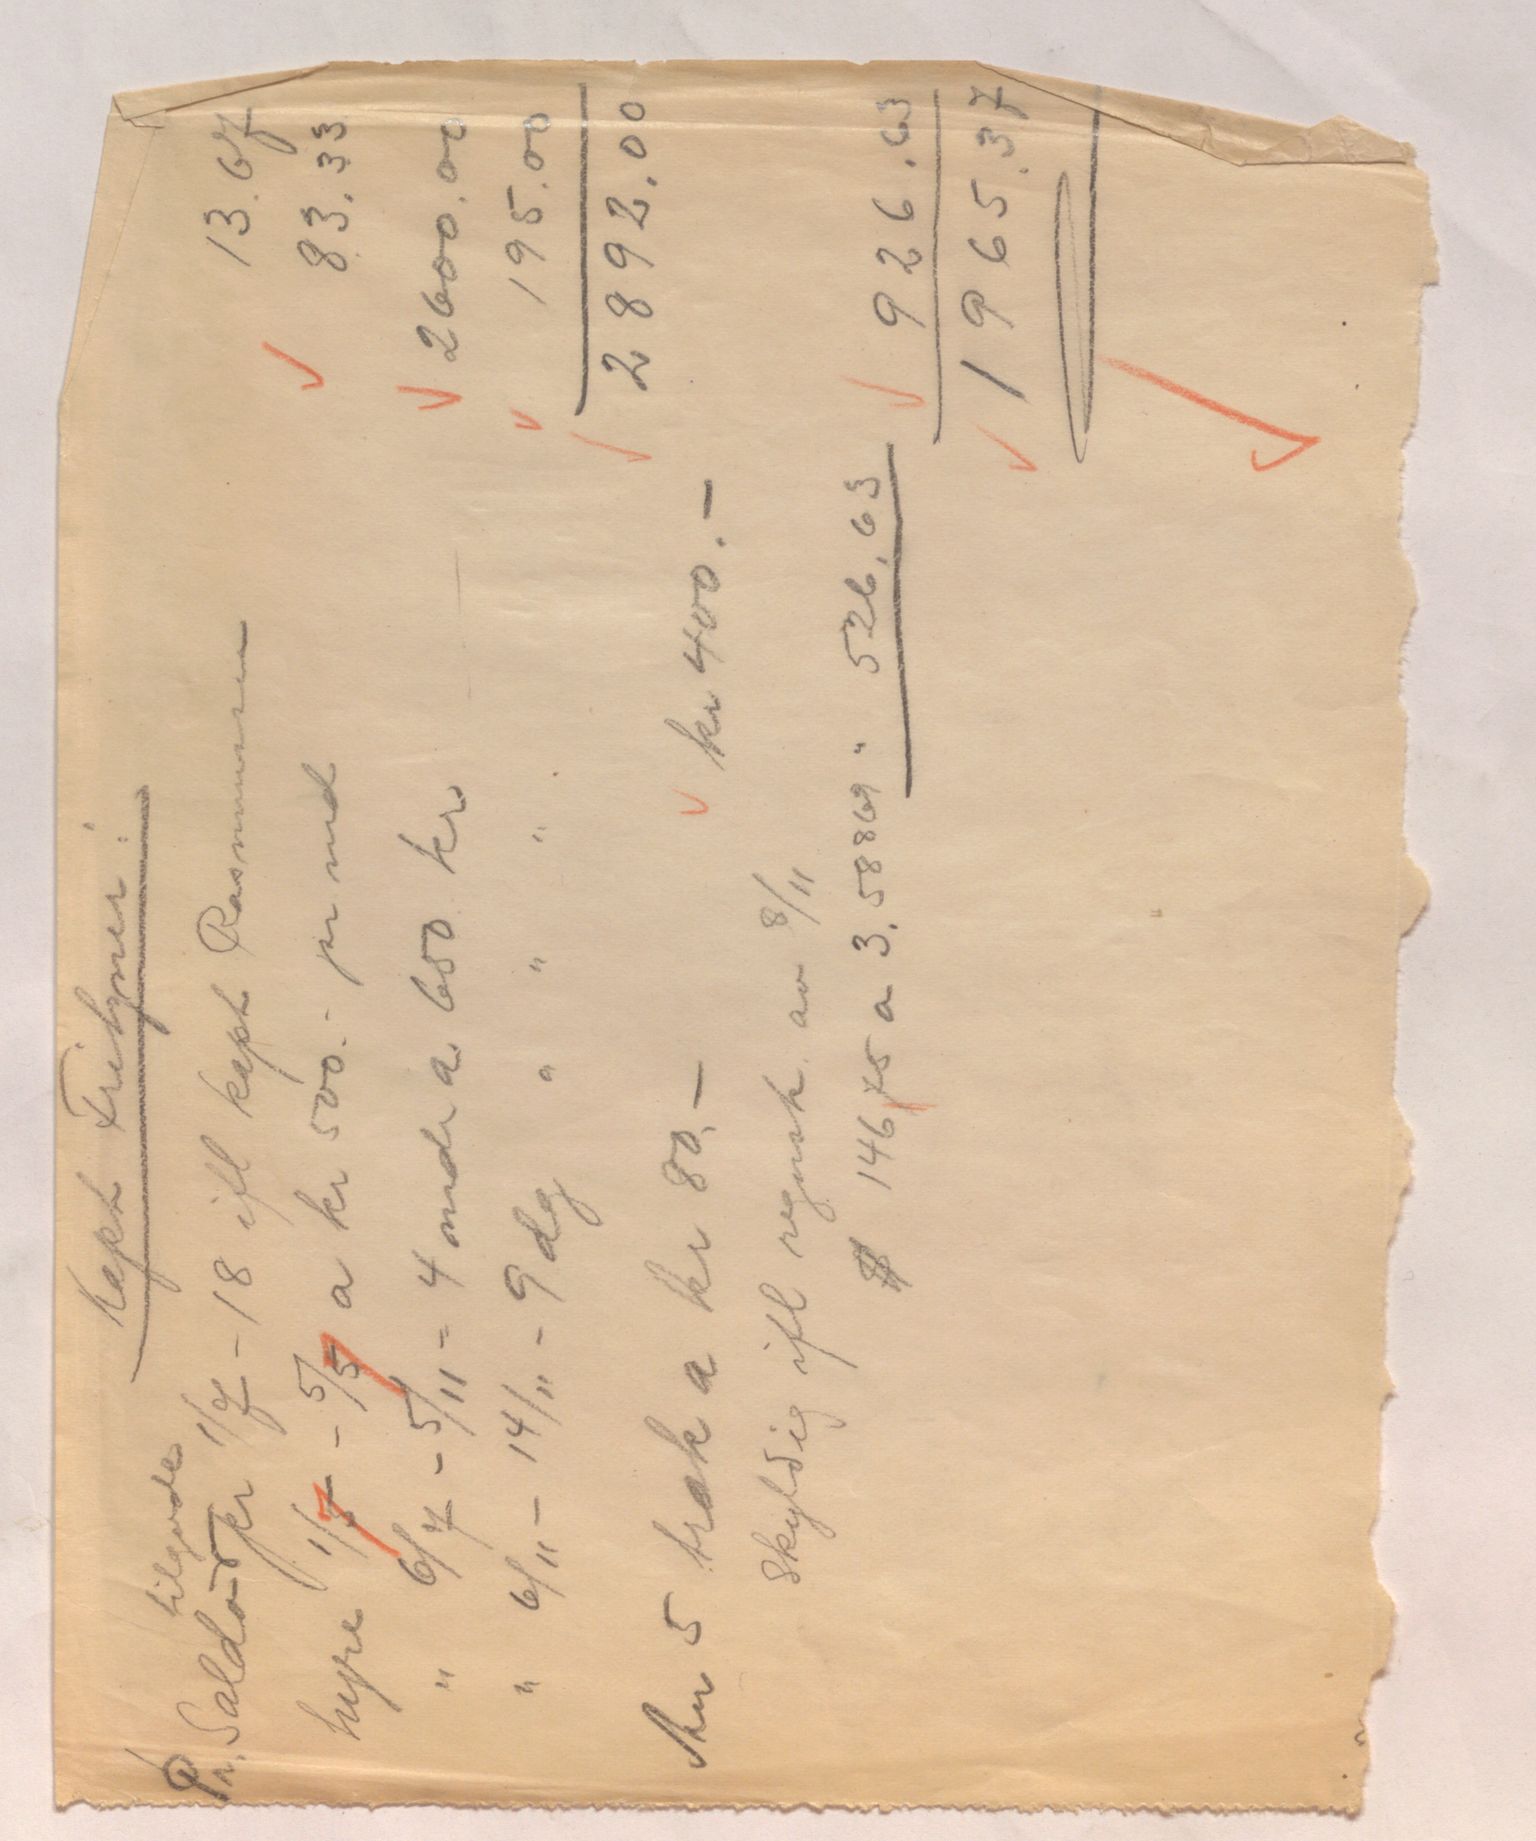 Kapt Frihyrer:
tilgode
Pr. Saldo pr 1/7 - 18 ifl kapt Rasmussen 13.67
hyre 1/7 - 5/7 a kr 500.- pr md 83.33
" 6/7 - 5/11 = 4 mndr a 650 kr 2600.00
" 6/11 - 14/11 - 9 dg " " " 195.00
2892.00
Her 5 træk a kr 80.- kr 400.-
Skyldig ifl regnsk. av 8/11
$ 146.75 a 3.58869 " 526.63 926.63
1965.37